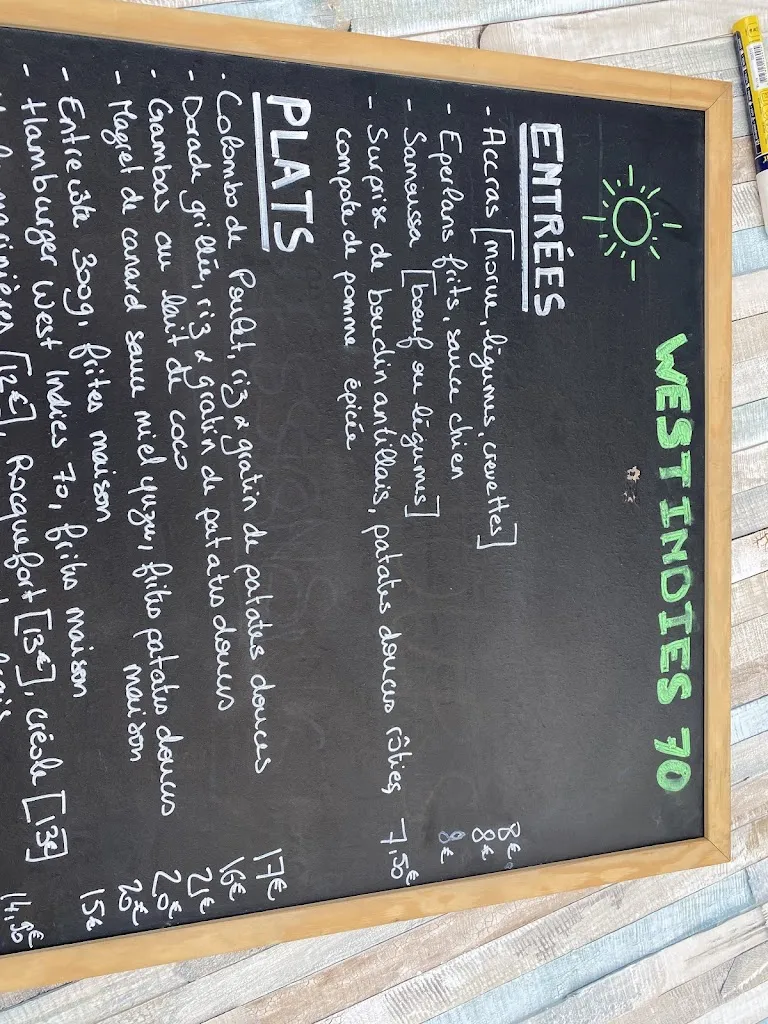 WEST INDIES 70
ENTRÉES
- Accras [morue, légumes, crevettes] 8€
- Eperlans frits, sauce chien 8€
- Samoussa [boeuf ou légumes] 8€
- Surprise de boudin antillais, patates douces rôties, 7,50€
compote de pomme épicée
PLATS
- Colombo de Poulet, riz & gratin de patates douces 17€
- Dorade grillée, riz & gratin de patates douces 16€
- Gambas au lait de coco 21€
- Magret de canard sauce miel yuzu, frites patates douces 20€
maison
- Entrecôte 300g, frites maison 20€
- Hamburger West Indies 70, frites maison 15€
marinières [12€], Rocquefort [13€], créole [13€]
14,90€